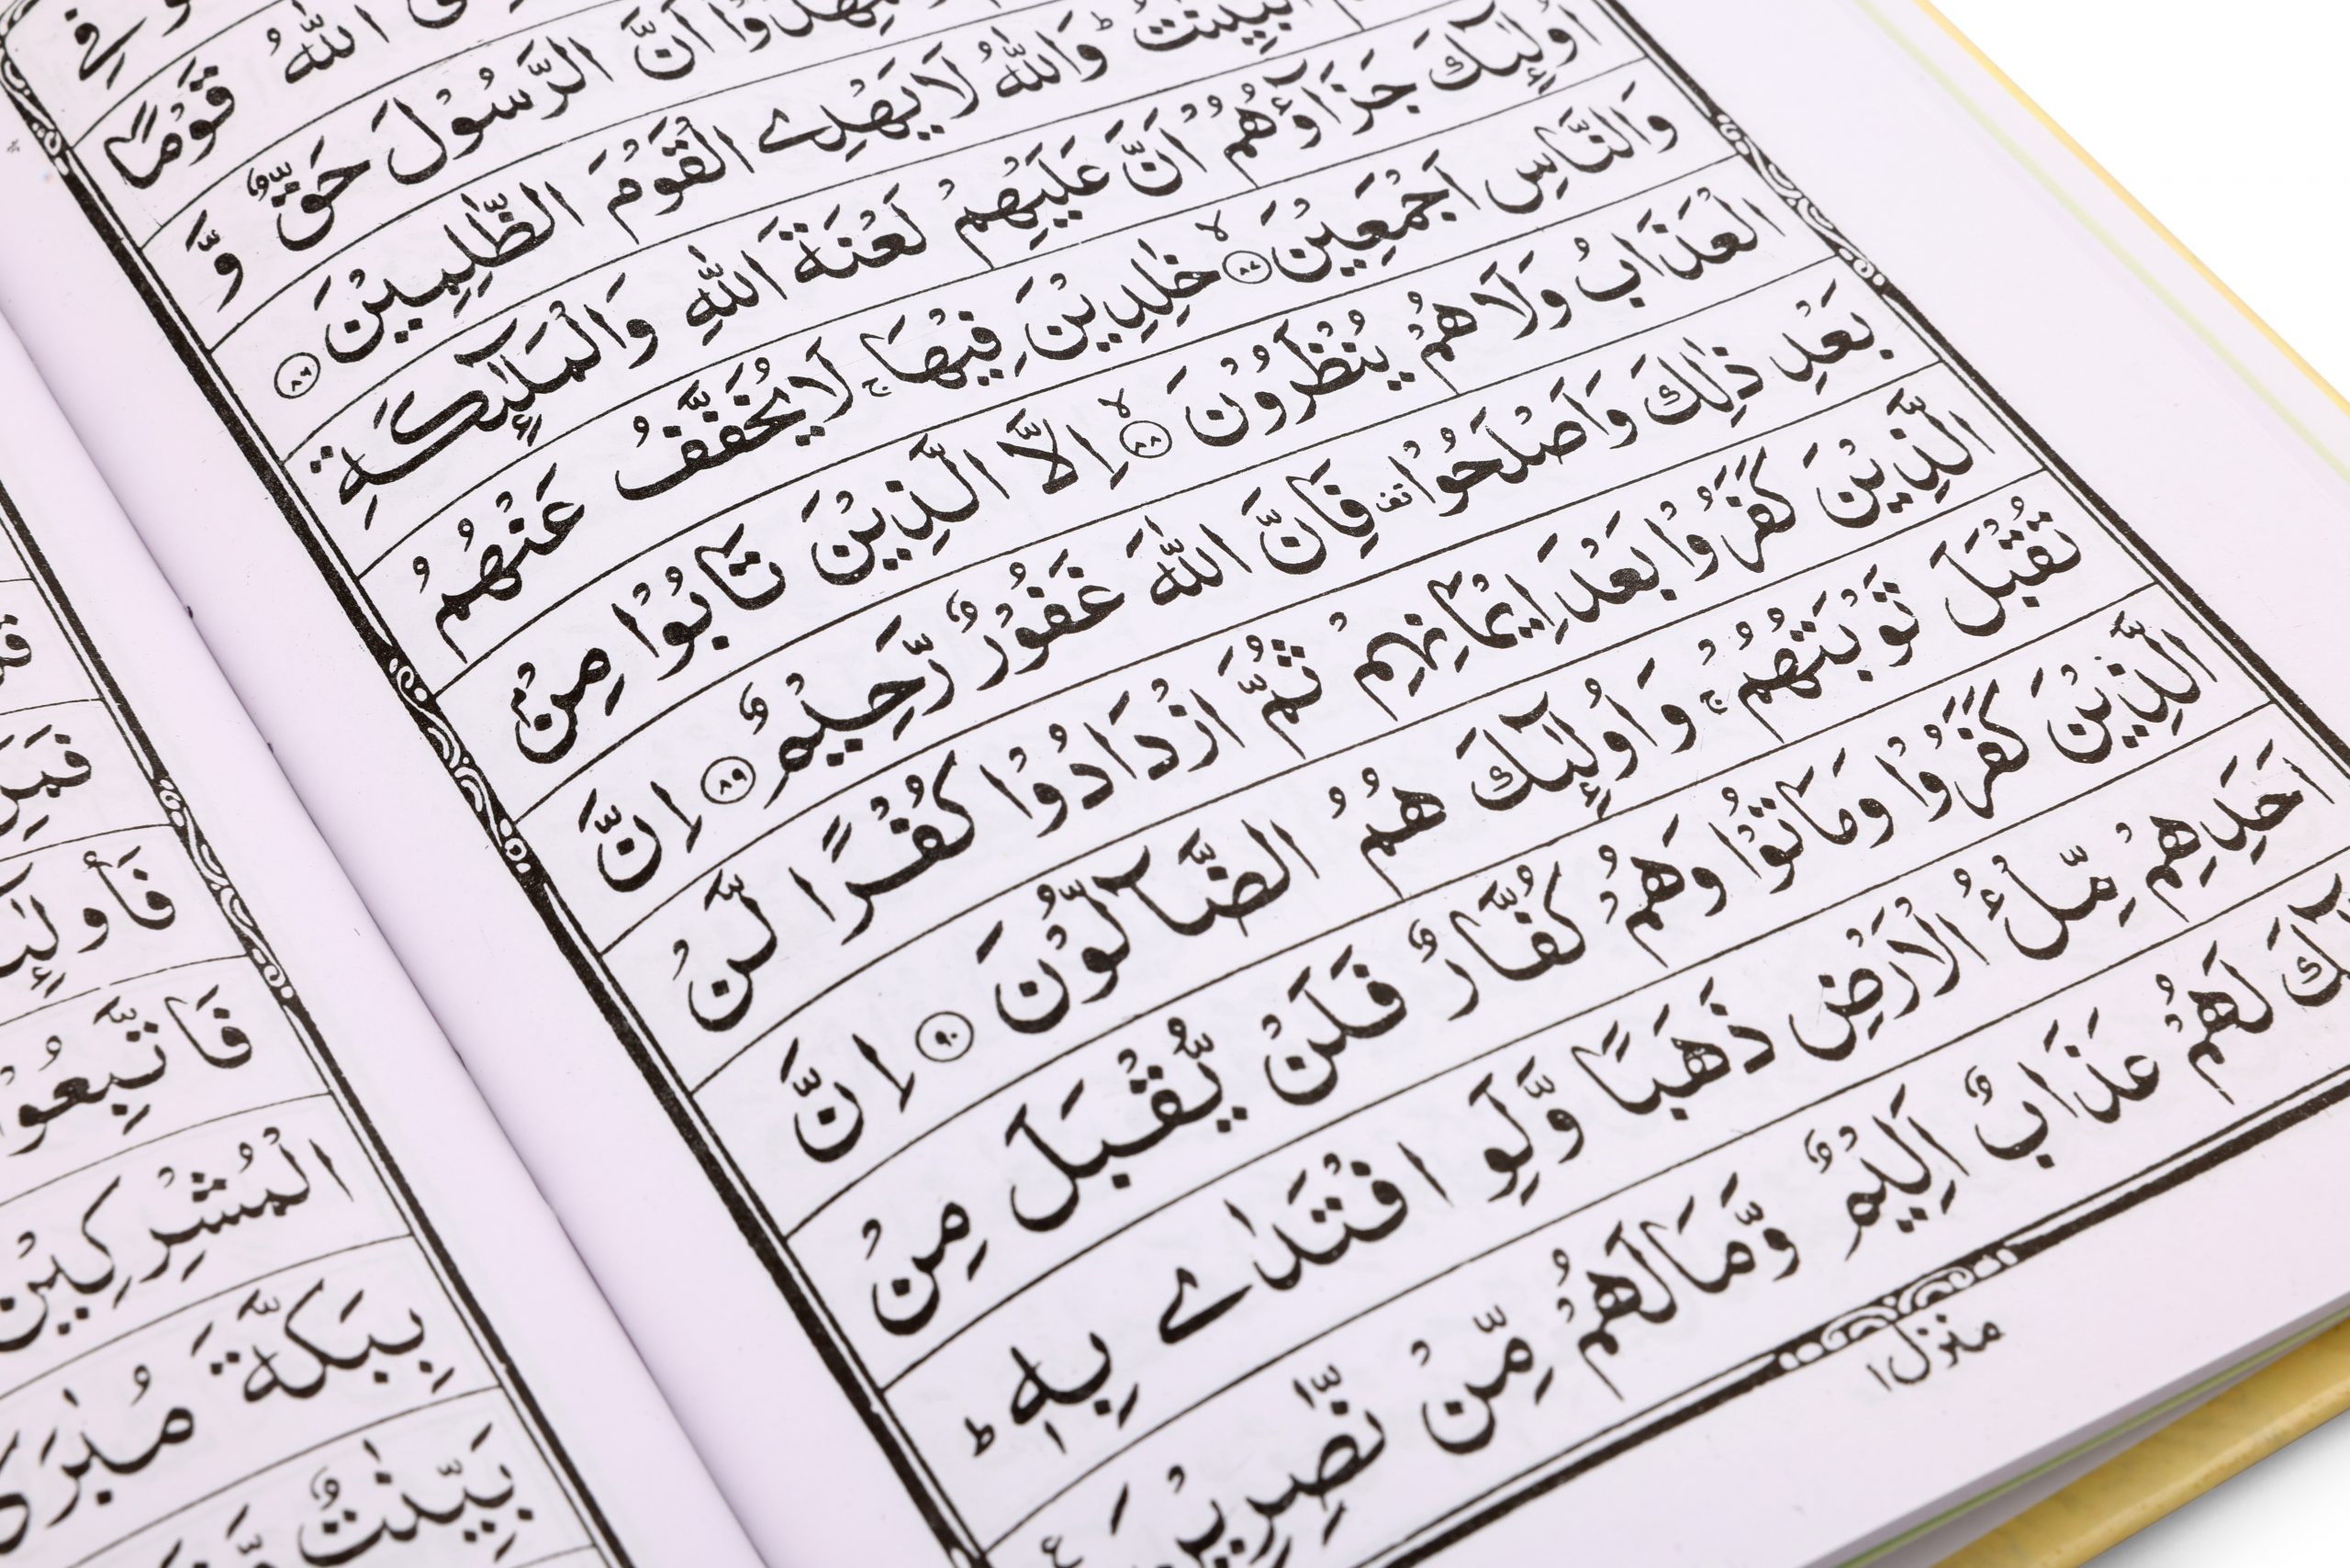 فِي
اللّٰهُ قَوْمًا
اَنَّ الرَّسُوْلَ حَقٌّ وَّ
وَاللّٰهُ لَا يَهْدِے الْقَوْمَ الظّٰلِمِيْنَ ۝٨٦
اُولٰٓئِكَ جَزَآؤُهُمْ اَنَّ عَلَيْهِمْ لَعْنَةَ اللّٰهِ وَالْمَلٰٓئِكَةِ
وَالنَّاسِ اَجْمَعِيْنَ ۝٨٧ۙ خٰلِدِيْنَ فِيْهَا ۚ لَا يُخَفَّفُ عَنْهُمُ
الْعَذَابُ وَلَا هُمْ يُنْظَرُوْنَ ۝٨٨ۙ اِلَّا الَّذِيْنَ تَابُوْا مِنْۢ
بَعْدِ ذٰلِكَ وَاَصْلَحُوْا ۫ فَاِنَّ اللّٰهَ غَفُوْرٌ رَّحِيْمٌ ۝٨٩ اِنَّ
الَّذِيْنَ كَفَرُوْا بَعْدَ اِيْمَانِهِمْ ثُمَّ ازْدَادُوْا كُفْرًا لَّنْ
تُقْبَلَ تَوْبَتُهُمْ ۚ وَاُولٰٓئِكَ هُمُ الضَّآلُّوْنَ ۝٩٠ اِنَّ
الَّذِيْنَ كَفَرُوْا وَمَاتُوْا وَهُمْ كُفَّارٌ فَلَنْ يُّقْبَلَ مِنْ
اَحَدِهِمْ مِّلْءُ الْاَرْضِ ذَهَبًا وَّلَوِ افْتَدٰے بِهٖ ؕ
لَهُمْ عَذَابٌ اَلِيْمٌ وَّمَا لَهُمْ مِّنْ نّٰصِرِيْنَ
منزل ۱
فَمَنِ
فَاتَّبِعُوْا
الْمُشْرِكِيْنَ
بِبَكَّةَ مُبٰرَكًا
بَيِّنٰتٌ